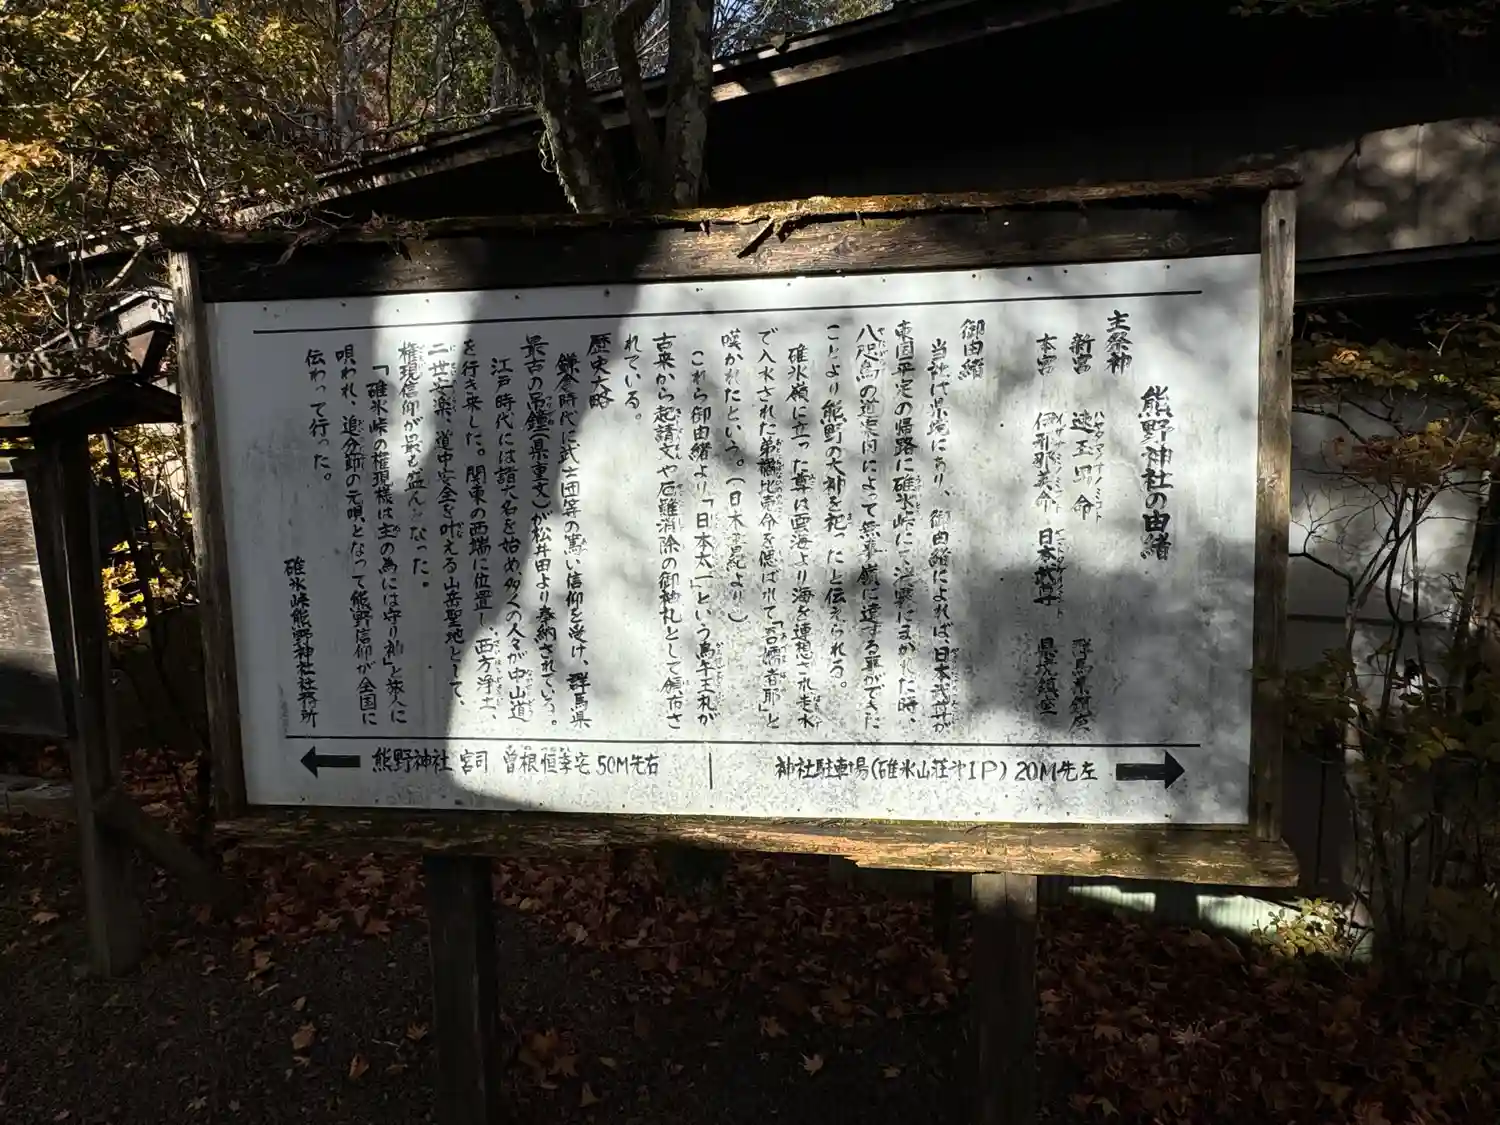 熊野神社の由緒
主祭神
新宮 速玉男命 群馬県鎮座
ハヤタマオノミコト
本宮 伊邪那美命 日本武尊 県境鎮座
イザナミノミコト
御由緒
当社は県境にあり、御由緒によれば、日本武尊が
東国平定の帰路に碓氷峠にて濃霧にまかれた時、
八咫烏の道案内によって無事嶺に達する事ができた
ことより熊野の大神を祀ったと伝えられる。
碓氷嶺に立った尊は雲海より海を連想され走水
で入水された弟橘比売命を偲ばれて「吾嬬者耶」と
嘆かれたという。(日本書紀より)
これら御由緒より「日本太一」という烏午王札が
古来から起請文や厄難消除の御神札として領布さ
れている。
歴史大略
鎌倉時代に武士団等の篤い信仰を受け、群馬県
最古の吊鐘(県重文)が松井田より奉納されている。
江戸時代には諸大名を始め多くの人々が中山道
を行き来した。関東の西端に位置し、西方浄土、
二世安楽、道中安全を叶える山岳聖地として、
権現信仰が最も盛んとなった。
「碓氷峠の権現様は主の為には守り神」と旅人に
唄われ、追分節の元唄となって熊野信仰が全国に
伝わって行った。
碓氷峠熊野神社社務所
熊野神社 宮司 曽根恒季宅 50M先右
神社駐車場(碓氷山荘ヤIP) 20M先左